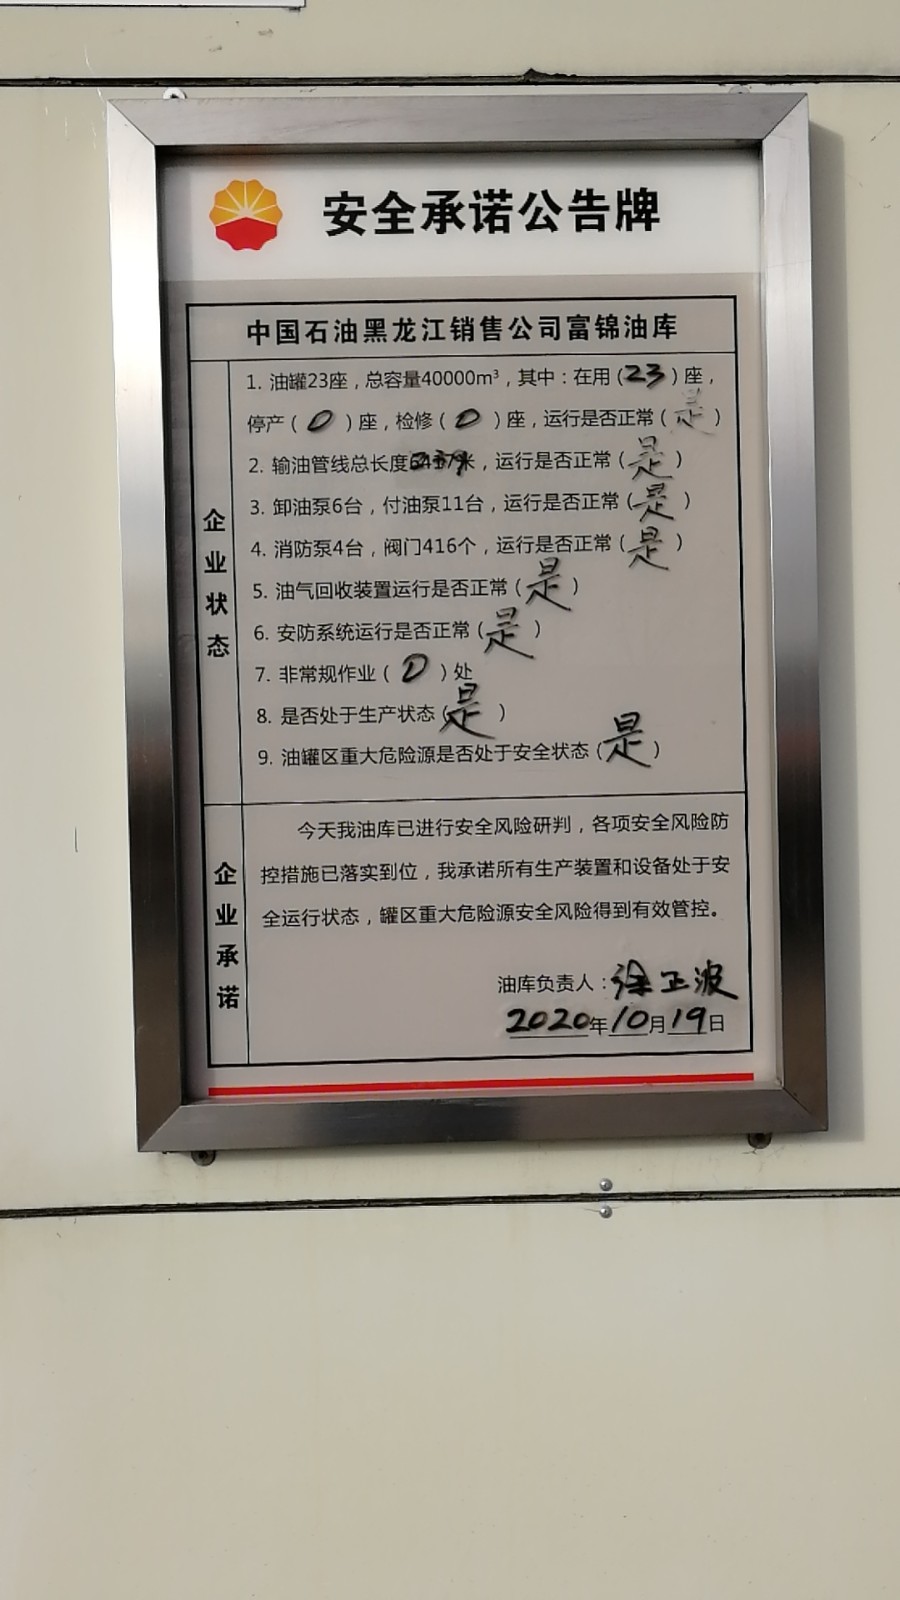 安全承诺公告牌
中国石油黑龙江销售公司富锦油库
企业状态
1. 油罐23座，总容量40000m³，其中：在用（23）座，
停产（0）座，检修（0）座，运行是否正常（是）
2. 输油管线总长度米，运行是否正常（是）
3. 卸油泵6台，付油泵11台，运行是否正常（是）
4. 消防泵4台，阀门416个，运行是否正常（是）
5. 油气回收装置运行是否正常（是）
6. 安防系统运行是否正常（是）
7. 非常规作业（0）处
8. 是否处于生产状态（是）
9. 油罐区重大危险源是否处于安全状态（是）
企业承诺
今天我油库已进行安全风险研判，各项安全风险防
控措施已落实到位，我承诺所有生产装置和设备处于安
全运行状态，罐区重大危险源安全风险得到有效管控。
油库负责人：徐正波
2020年10月19日